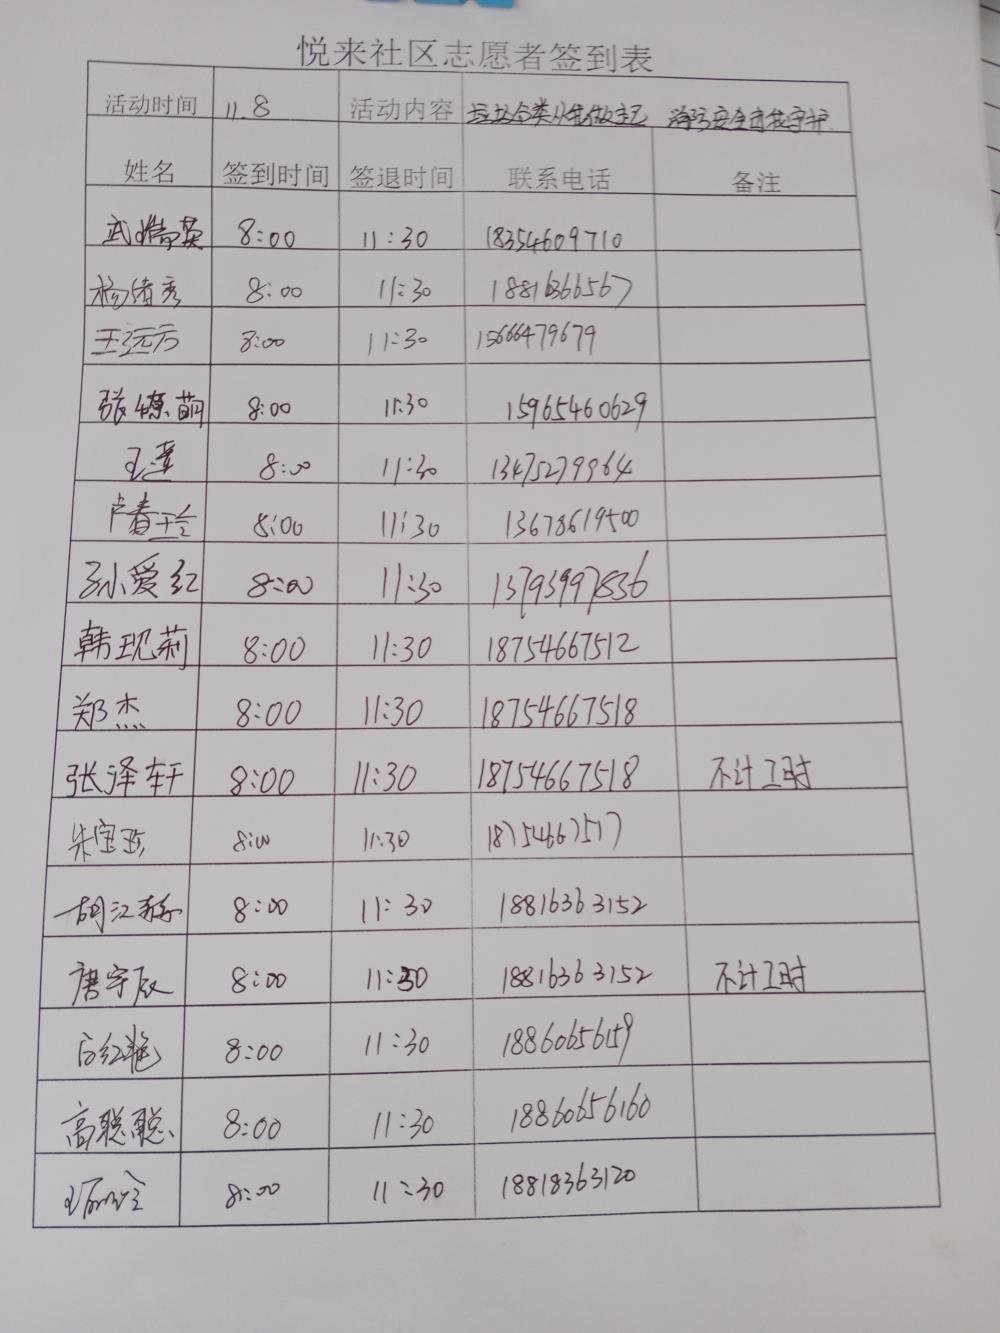 悦来社区志愿者签到表
活动时间 11.8 活动内容 垃圾分类从我做起 消防安全由我守护
姓名 签到时间 签退时间 联系电话 备注
武精英 8:00 11:30 18354609710
杨绪秀 8:00 11:30 18816366567
王远方 8:00 11:30 15666479679
张燎萌 8:00 11:30 15965460629
王莲 8:00 11:30 13475279964
卢春 8:00 11:30 13678619500
孙爱红 8:00 11:30 13793997836
韩现莉 8:00 11:30 18754667512
郑杰 8:00 11:30 18754667518
张泽轩 8:00 11:30 18754667518 不计工时
朱宝珍 8:00 11:30 18754667517
胡江 8:00 11:30 18816363152
唐宇辰 8:00 11:30 18816363152 不计工时
白红艳 8:00 11:30 18860656159
高聪聪 8:00 11:30 18860656160
王 8:00 11:30 18818363120